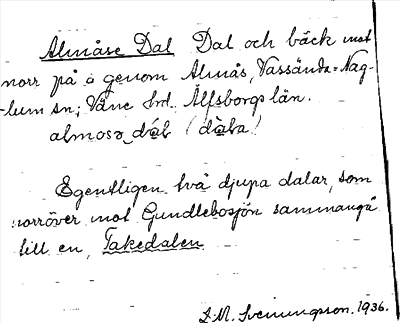 Almåse Dal Dal och bäck mot
norr på ö genom Almås, Vassända-Nag-
-lum sn; Väne hd. Älfsborgs län.
almosə dɑl (dɑla)
Egentligen två djupa dalar, som
norröver mot Gundlebosjön sammangå
till en, Takedalen
S.M. Svenungsson. 1936.